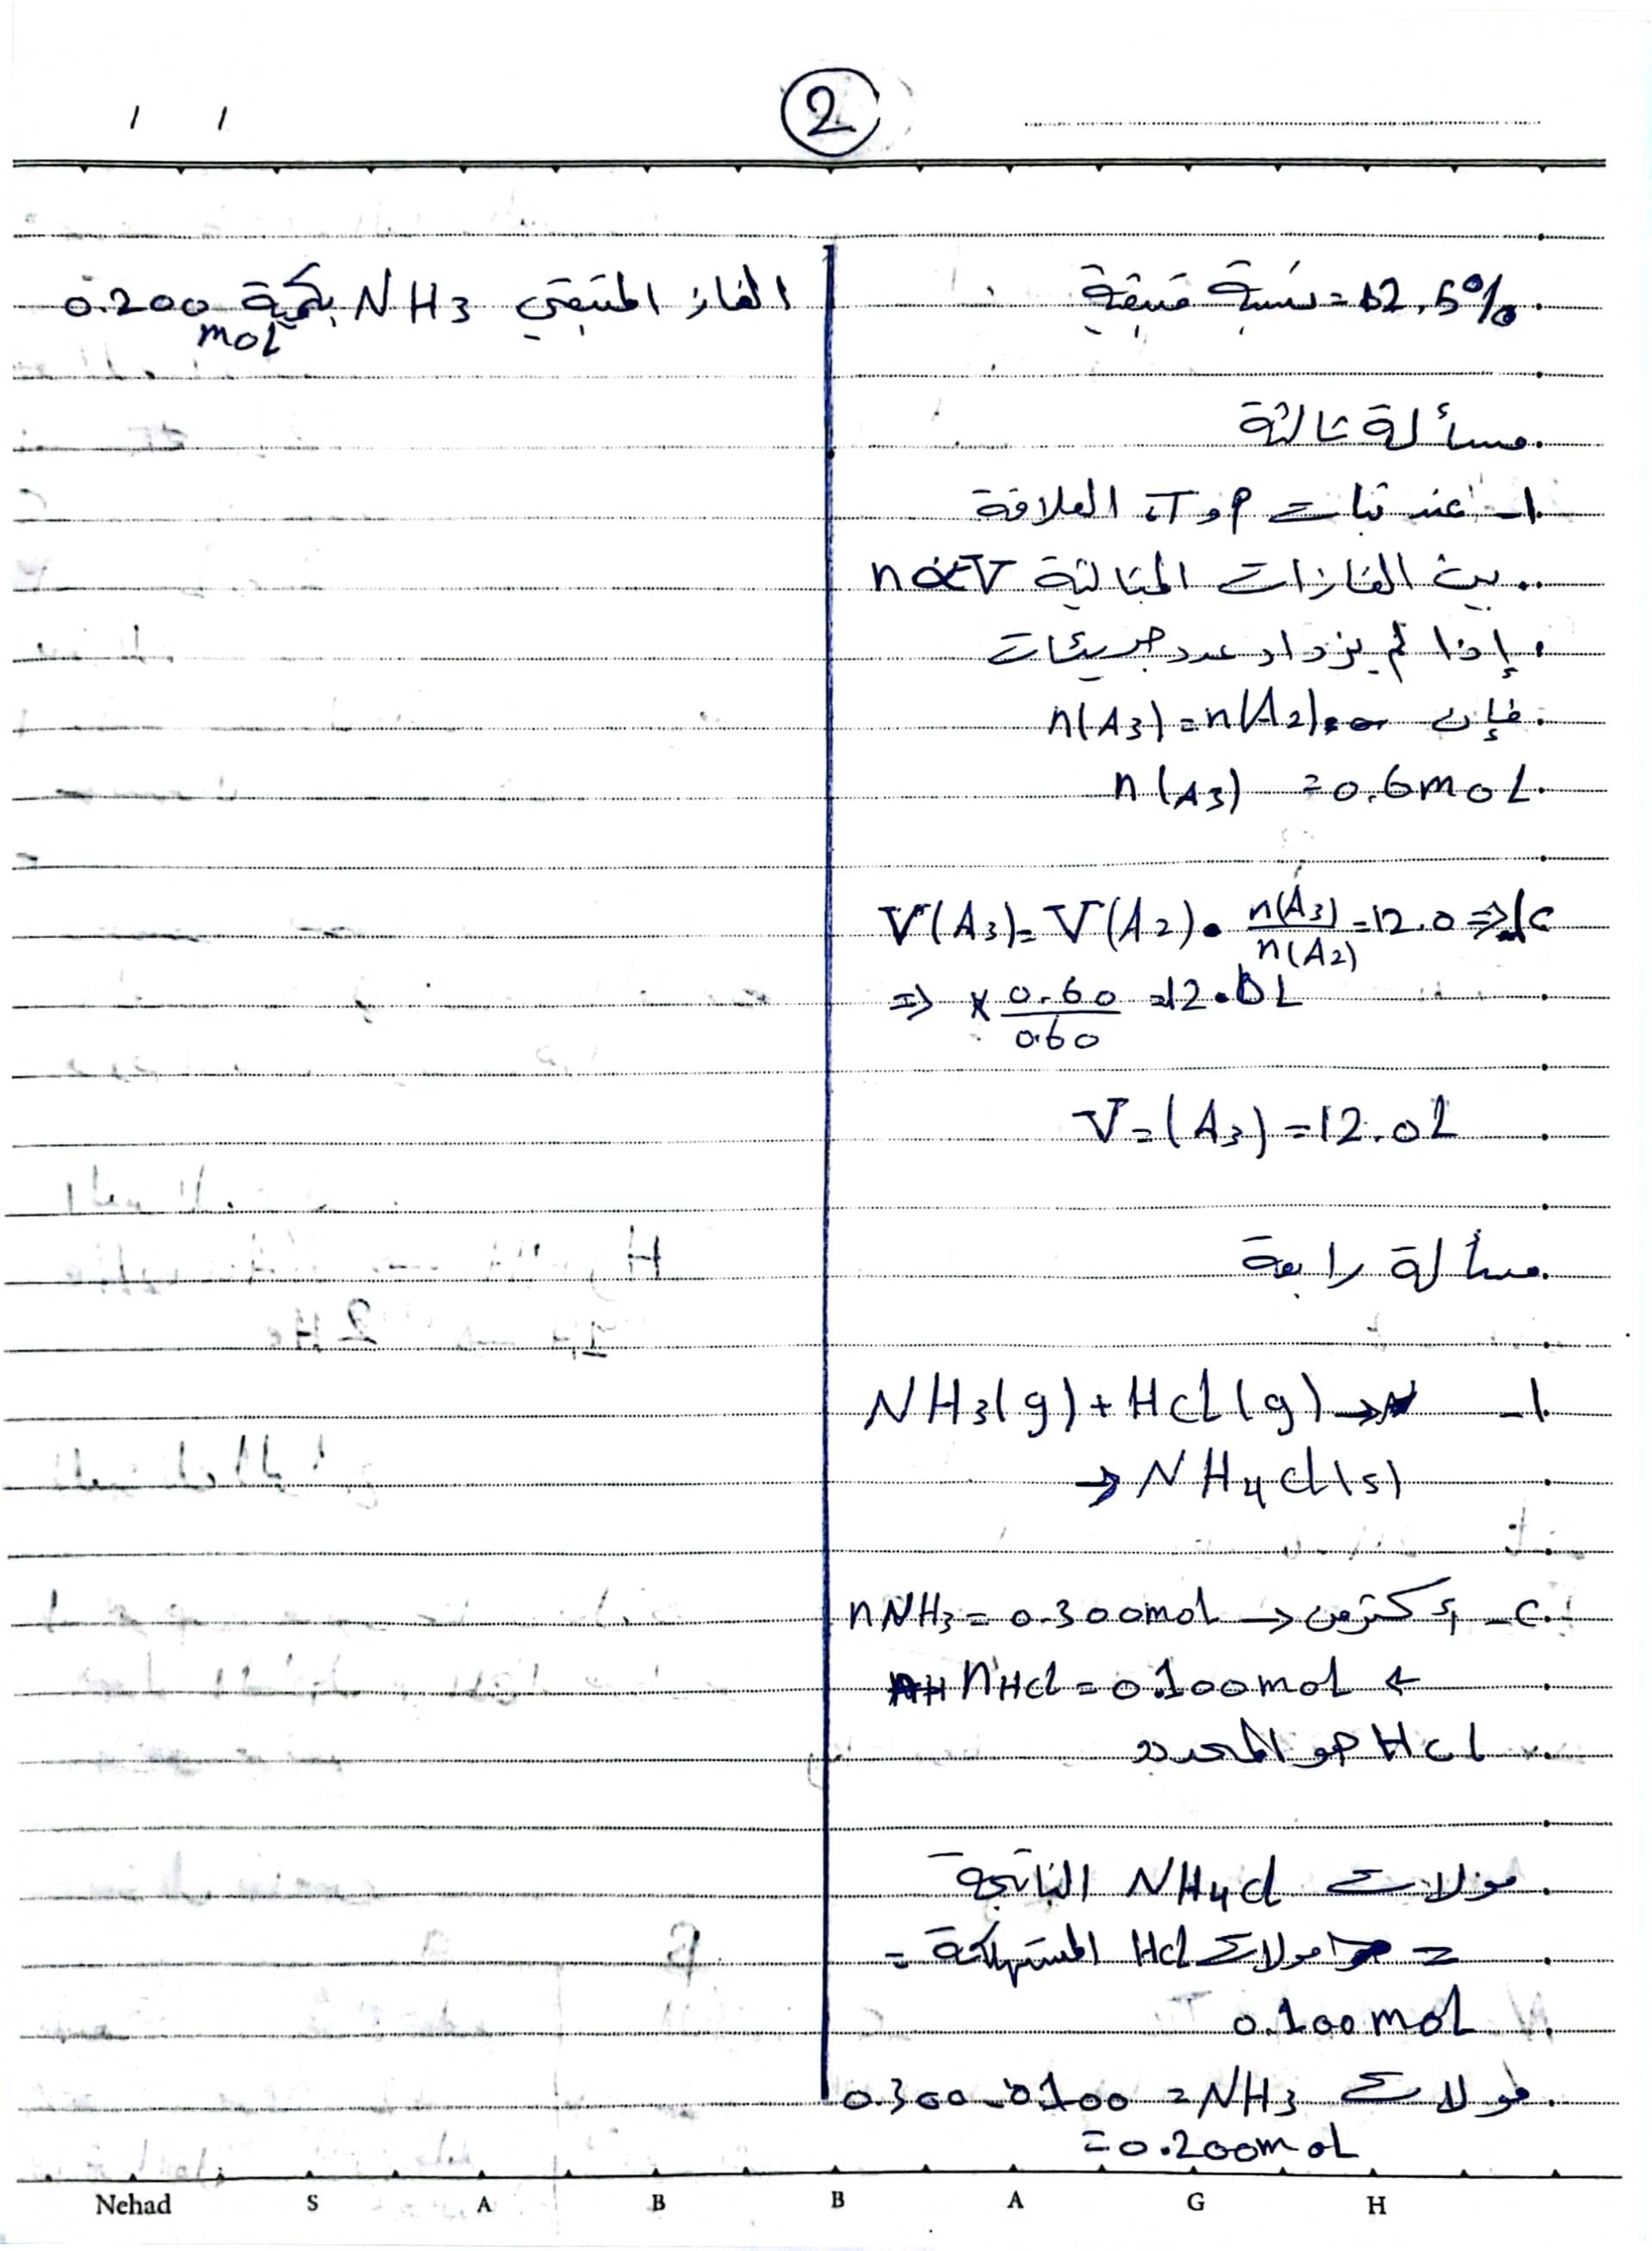 2
/ /
12.5% = نسبة متبقية
مسألة ثالثة
1- عند ثبات P و T، العلاقة
بين الغازات المثالية n∝V
إذا لم يزداد عدد جزيئات
فإن n(A3) = n(A2)
n(A3) = 0.6 mol
2- V(A3) = V(A2) • n(A3)/n(A2) = 12.0 ⇒
⇒ × 0.60/0.60 = 12.0 L
V=(A3) = 12.0 L
مسألة رابعة
1- NH3(g) + HCl(g) →
→ NH4Cl(s)
2- أكثر من → nNH3 = 0.300 mol
← nHCl = 0.100 mol
HCl هو المحدد
مولات NH4Cl الناتجة
= مولات HCl المستهلكة =
0.100 mol
مولات NH3 = 0.300 - 0.100
= 0.200 mol
الغاز المتبقي NH3 بكمية 0.200
mol
Nehad S A B B A G H